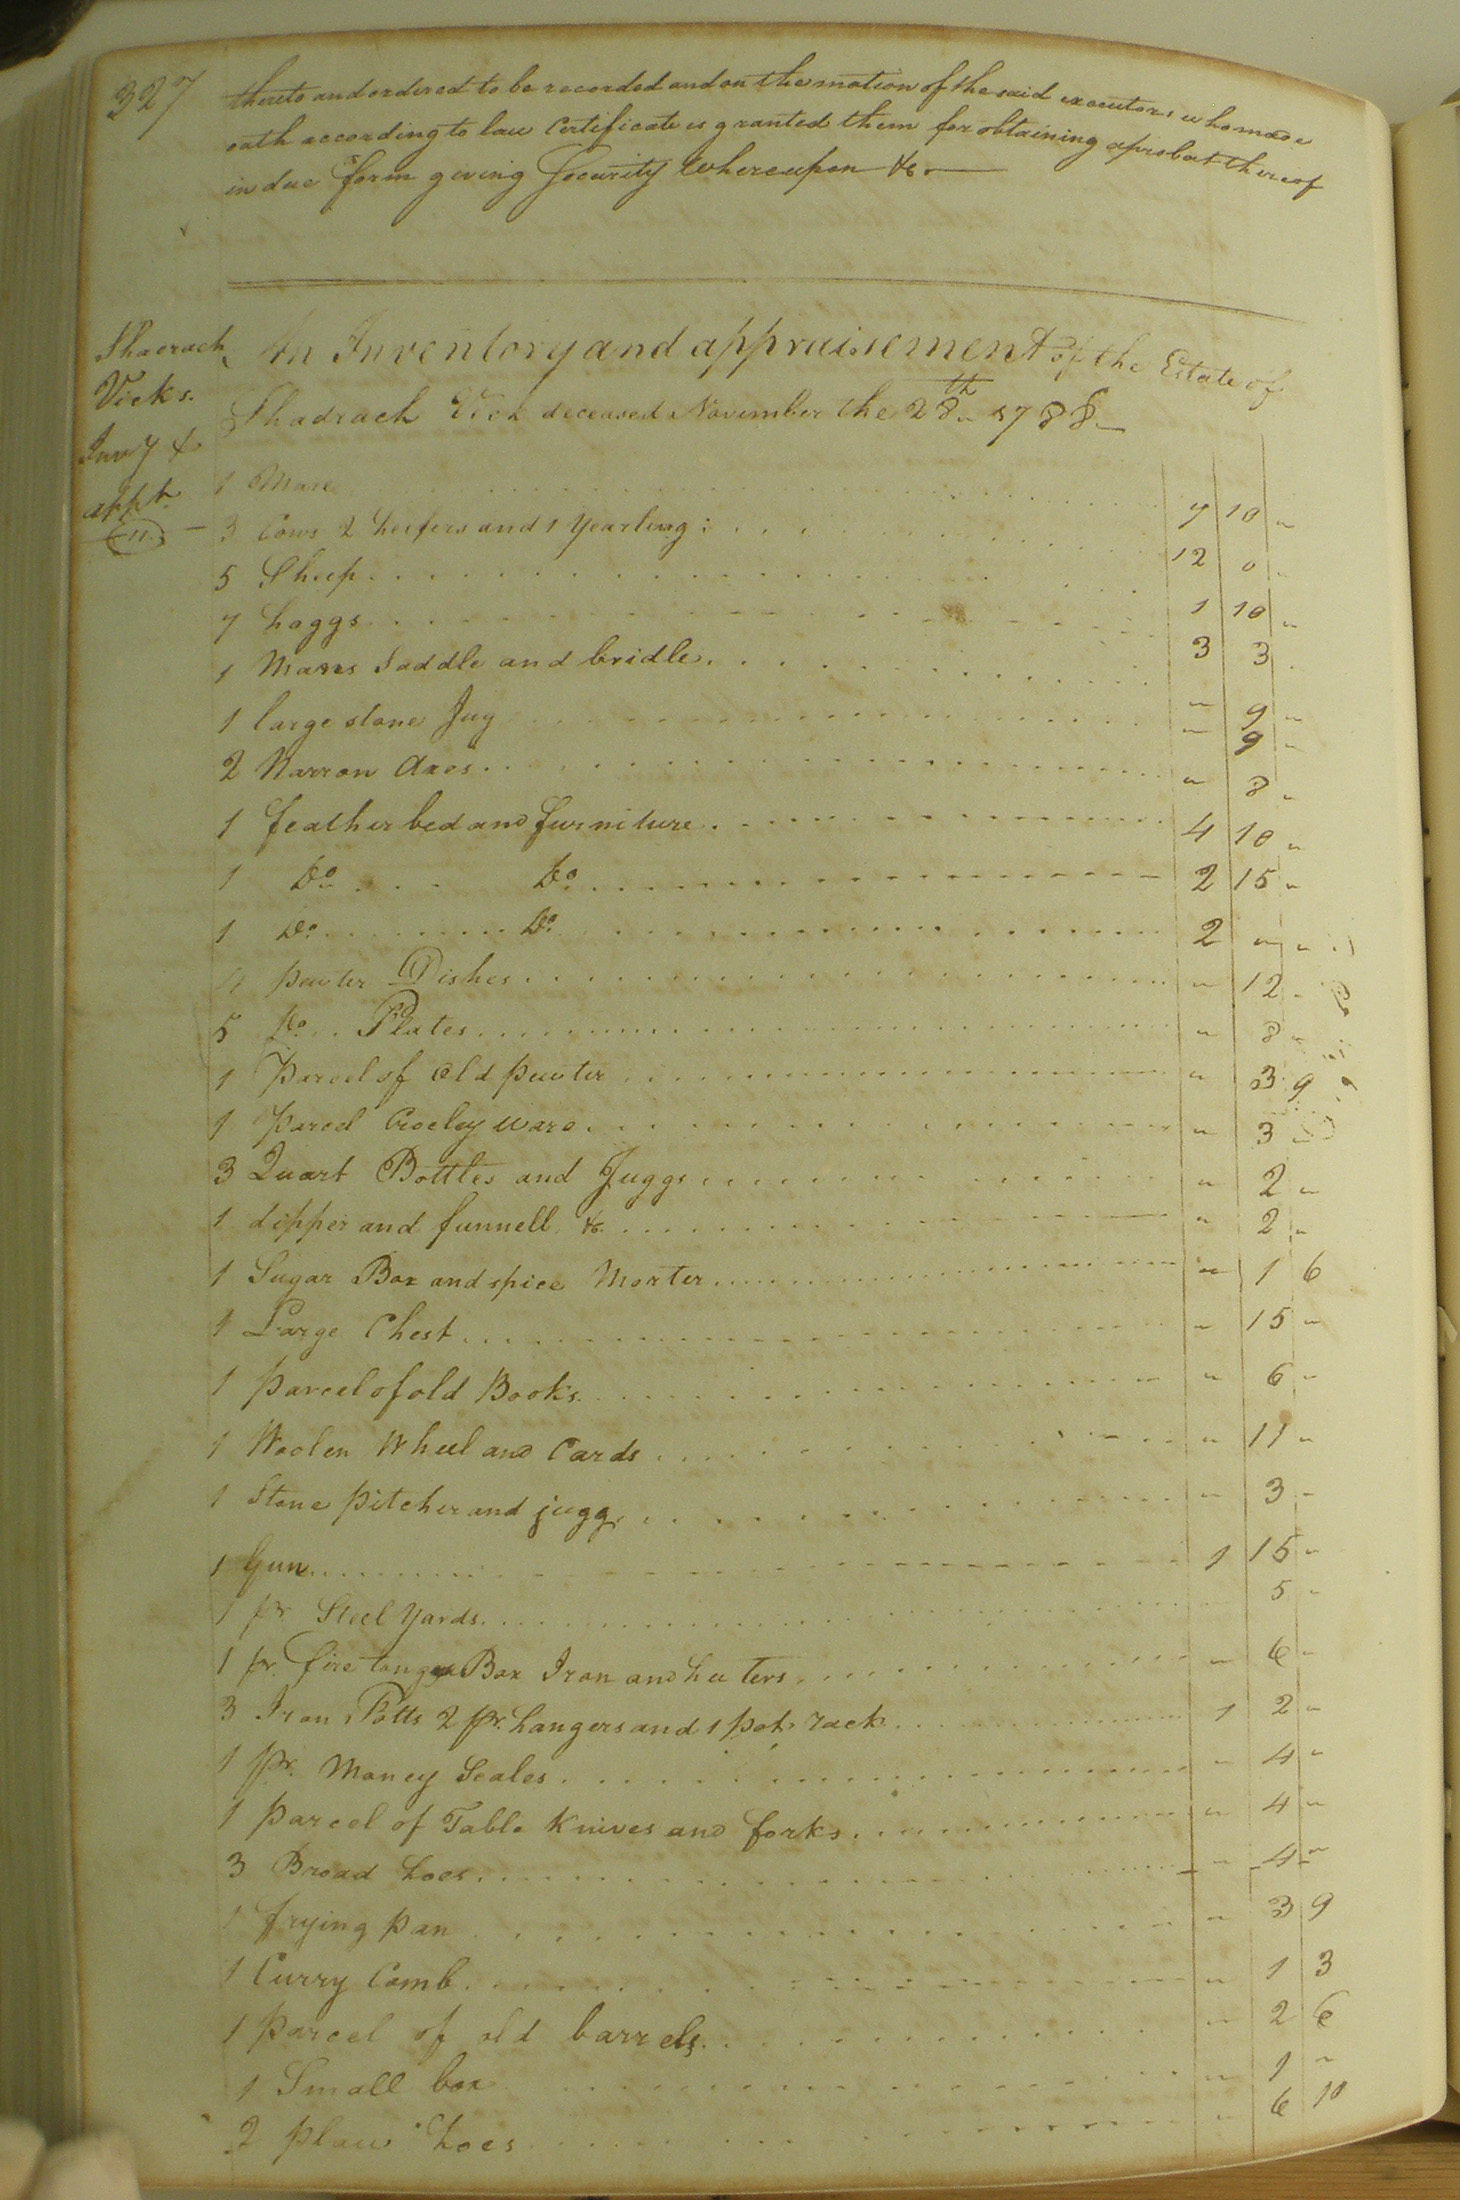 327
thereto and ordered to be recorded and on the motion of the said executors who made
oath according to law Certificate is granted them for obtaining aprobat thereof
in due form giving Security whereupon &c.
Shacrach Vicks. Invy & appt.
An Inventory and appraisement of the Estate of
Shadrach Vick deceased November the 28th 1788
1 Mare 7 10 "
3 Cows 2 heifers and 1 Yearling 12 0 "
5 Sheep 1 10 "
7 hoggs 3 3
1 Mans Saddle and bridle " 9 "
1 large stone Jug " 9 "
2 Narron Axes " 8 "
1 feather bed and furniture 4 10 "
1 Do. Do. 2 15 "
1 Do. Do. 2 " "
4 pewter Dishes " 12 "
5 Do. Plates " 8 "
1 Parcel of Old pewter " 3 9
1 Parcel Croeley ware " 3 "
3 Quart Bottles and Juggs " 2 "
1 dipper and funnell &c. " 2 "
1 Sugar Box and spice Morter " 1 6
1 Large Chest " 15 "
1 parcel of old Books " 6 "
1 Woolen Wheel and Cards " 11 "
1 Stone pitcher and jugg " 3 "
1 Gun 1 15 "
1 pr Steel Yards 5 "
1 pr. fire tongs Box Iron and heters " 6 "
3 Iron Potts 2 pr. hangers and 1 pot rack 1 2 "
1 pr. Money Scales " 4 "
1 parcel of Table Knives and forks " 4 "
3 Broad hoes " 4 "
1 frying pan " 3 9
1 Curry Comb " 1 3
1 parcel of old barrels " 2 6
1 Small box " 1 "
2 plow hoes " 6 10